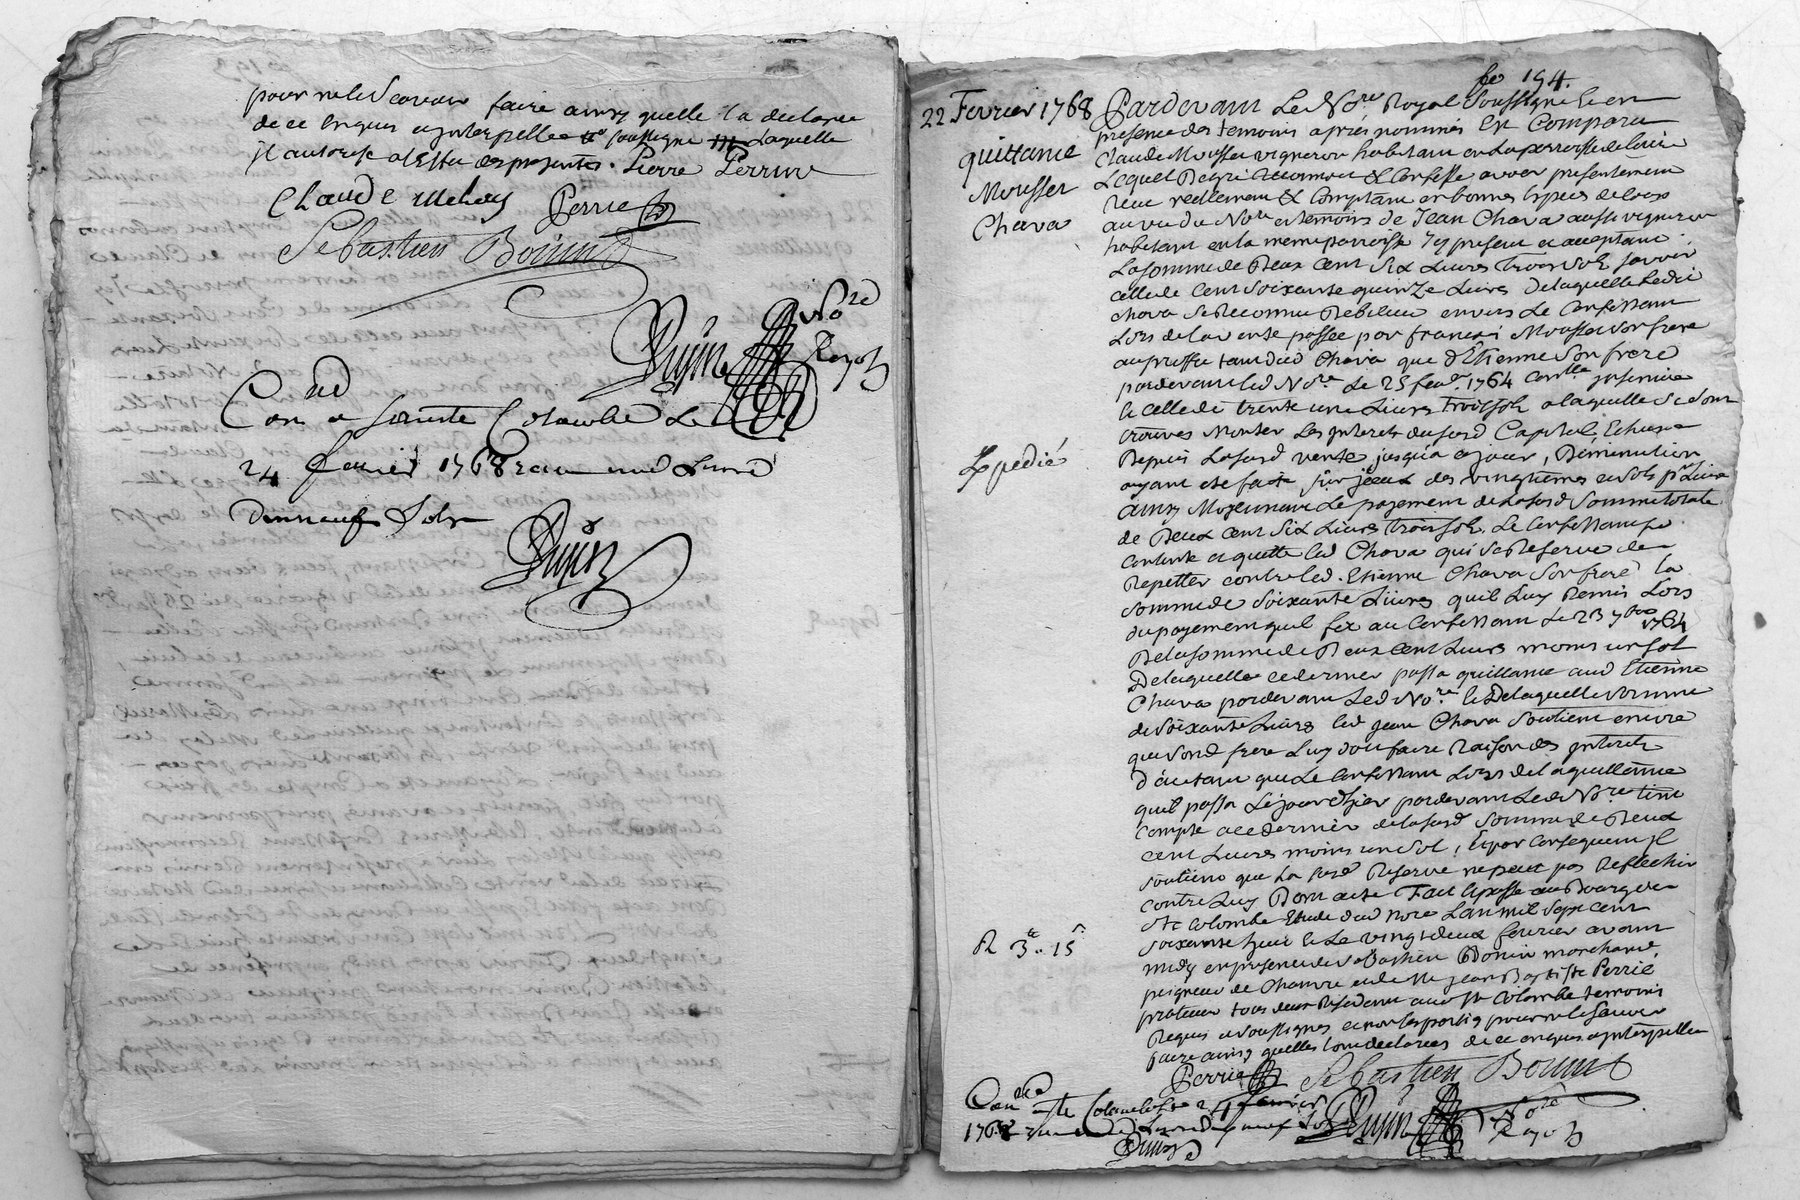 pour ne le scavoir faire ainsy quelle l'a declaree
de ce enquis et interpellée soussigné laquelle
il autorise a l'effet des presentes. Pierre Perrin
Claude Perrie
Sebastien Bonin
Dujin No.re
Royal
Con.
Con a sainte Colombe le
24 fevrier 1768 reçu une Livre
dixneuf sols
Dujin
fo 194.
22 Fevrier 1768
quittance
Mousset
Chava
Expedié
R 3 tt.. 15 s
Pardevant Le No.re Royal Soussigné et en
presence des temoins après nommés est Comparu
Claude Mousset vigneron habitant en la parroisse de
Lequel de gré Confesse avoir presentement
reçu reellement & Comptant en bonnes especes de cours
au vu du No.re et temoins de Jean Chava aussi vigneron
habitant en la meme parroisse icy present et acceptant
La somme de Deux Cent Six Livres trois sols sçavoir
celle de Cent soixante quinze Livres de laquelle Ledit
Chava se Reconnu Debiteur envers Le Confessant
Lors de la vente passée par françois Mousset son frere
au proffit tant dud Chava que d'Etienne Son frere
pardevant led No.re Le 25 fev.r 1764
et celle de trente une Livres trois sols a laquelle se sont
trouvés monter Les interets dud Capital, Echus
Depuis Lasusd vente jusqu'a ce jour, Diminution
ayant eté faite sur iceux des vingtiemes et sols p.r Livre
ainsy Moyennant Le payement de Lasusd Somme totale
de Deux Cent Six Livres trois sols. Le Confessant se
contente et quitte led Chava qui se Reserve de
Repetter contre led. Etienne Chava Son frere la
somme de Soixante Livres quil Luy Remis Lors
du payement quil fit au Confessant Le 23 7bre 1764
De la somme de Deux Cent Livres moins un sol
De laquelle ce dernier passa quittance aud Etienne
Chava pardevant Led No.re et De laquelle somme
de Soixante Livres led Jean Chava Soutient encore
que Sond frere Luy doit faire Raison des interets
d'autant que Le Confessant Lors de la quittance
quil passa Le jour d'hier pardevant Led No.re tint
compte a ce dernier de Lasusd somme de Deux
cent Livres moins un Sol, Et par Consequent Il
soutient que La susd Reserve ne peut pas Reflechir
contre Luy Dont acte Fait et passé au Bourg de
Ste Colombe Etude dud Nore L'an mil Sept Cent
soixante huit et Le vingt deux fevrier avant
midy en presence de Sebastien Bonin marchand
peigneur de Chanvre et de Me Jean Baptiste Perrie
praticien tous deux Residant aud Ste Colombe temoins
Requis et Soussignés et non les parties pour ne le Scavoir
faire ainsy quelles l'ont declarées de ce enquis et interpellées
Perrie Sebastien Bonin
Con.lé a Ste Colombe le 24 fevrier Dujin No.re
1768 reçu Royal
Dujin